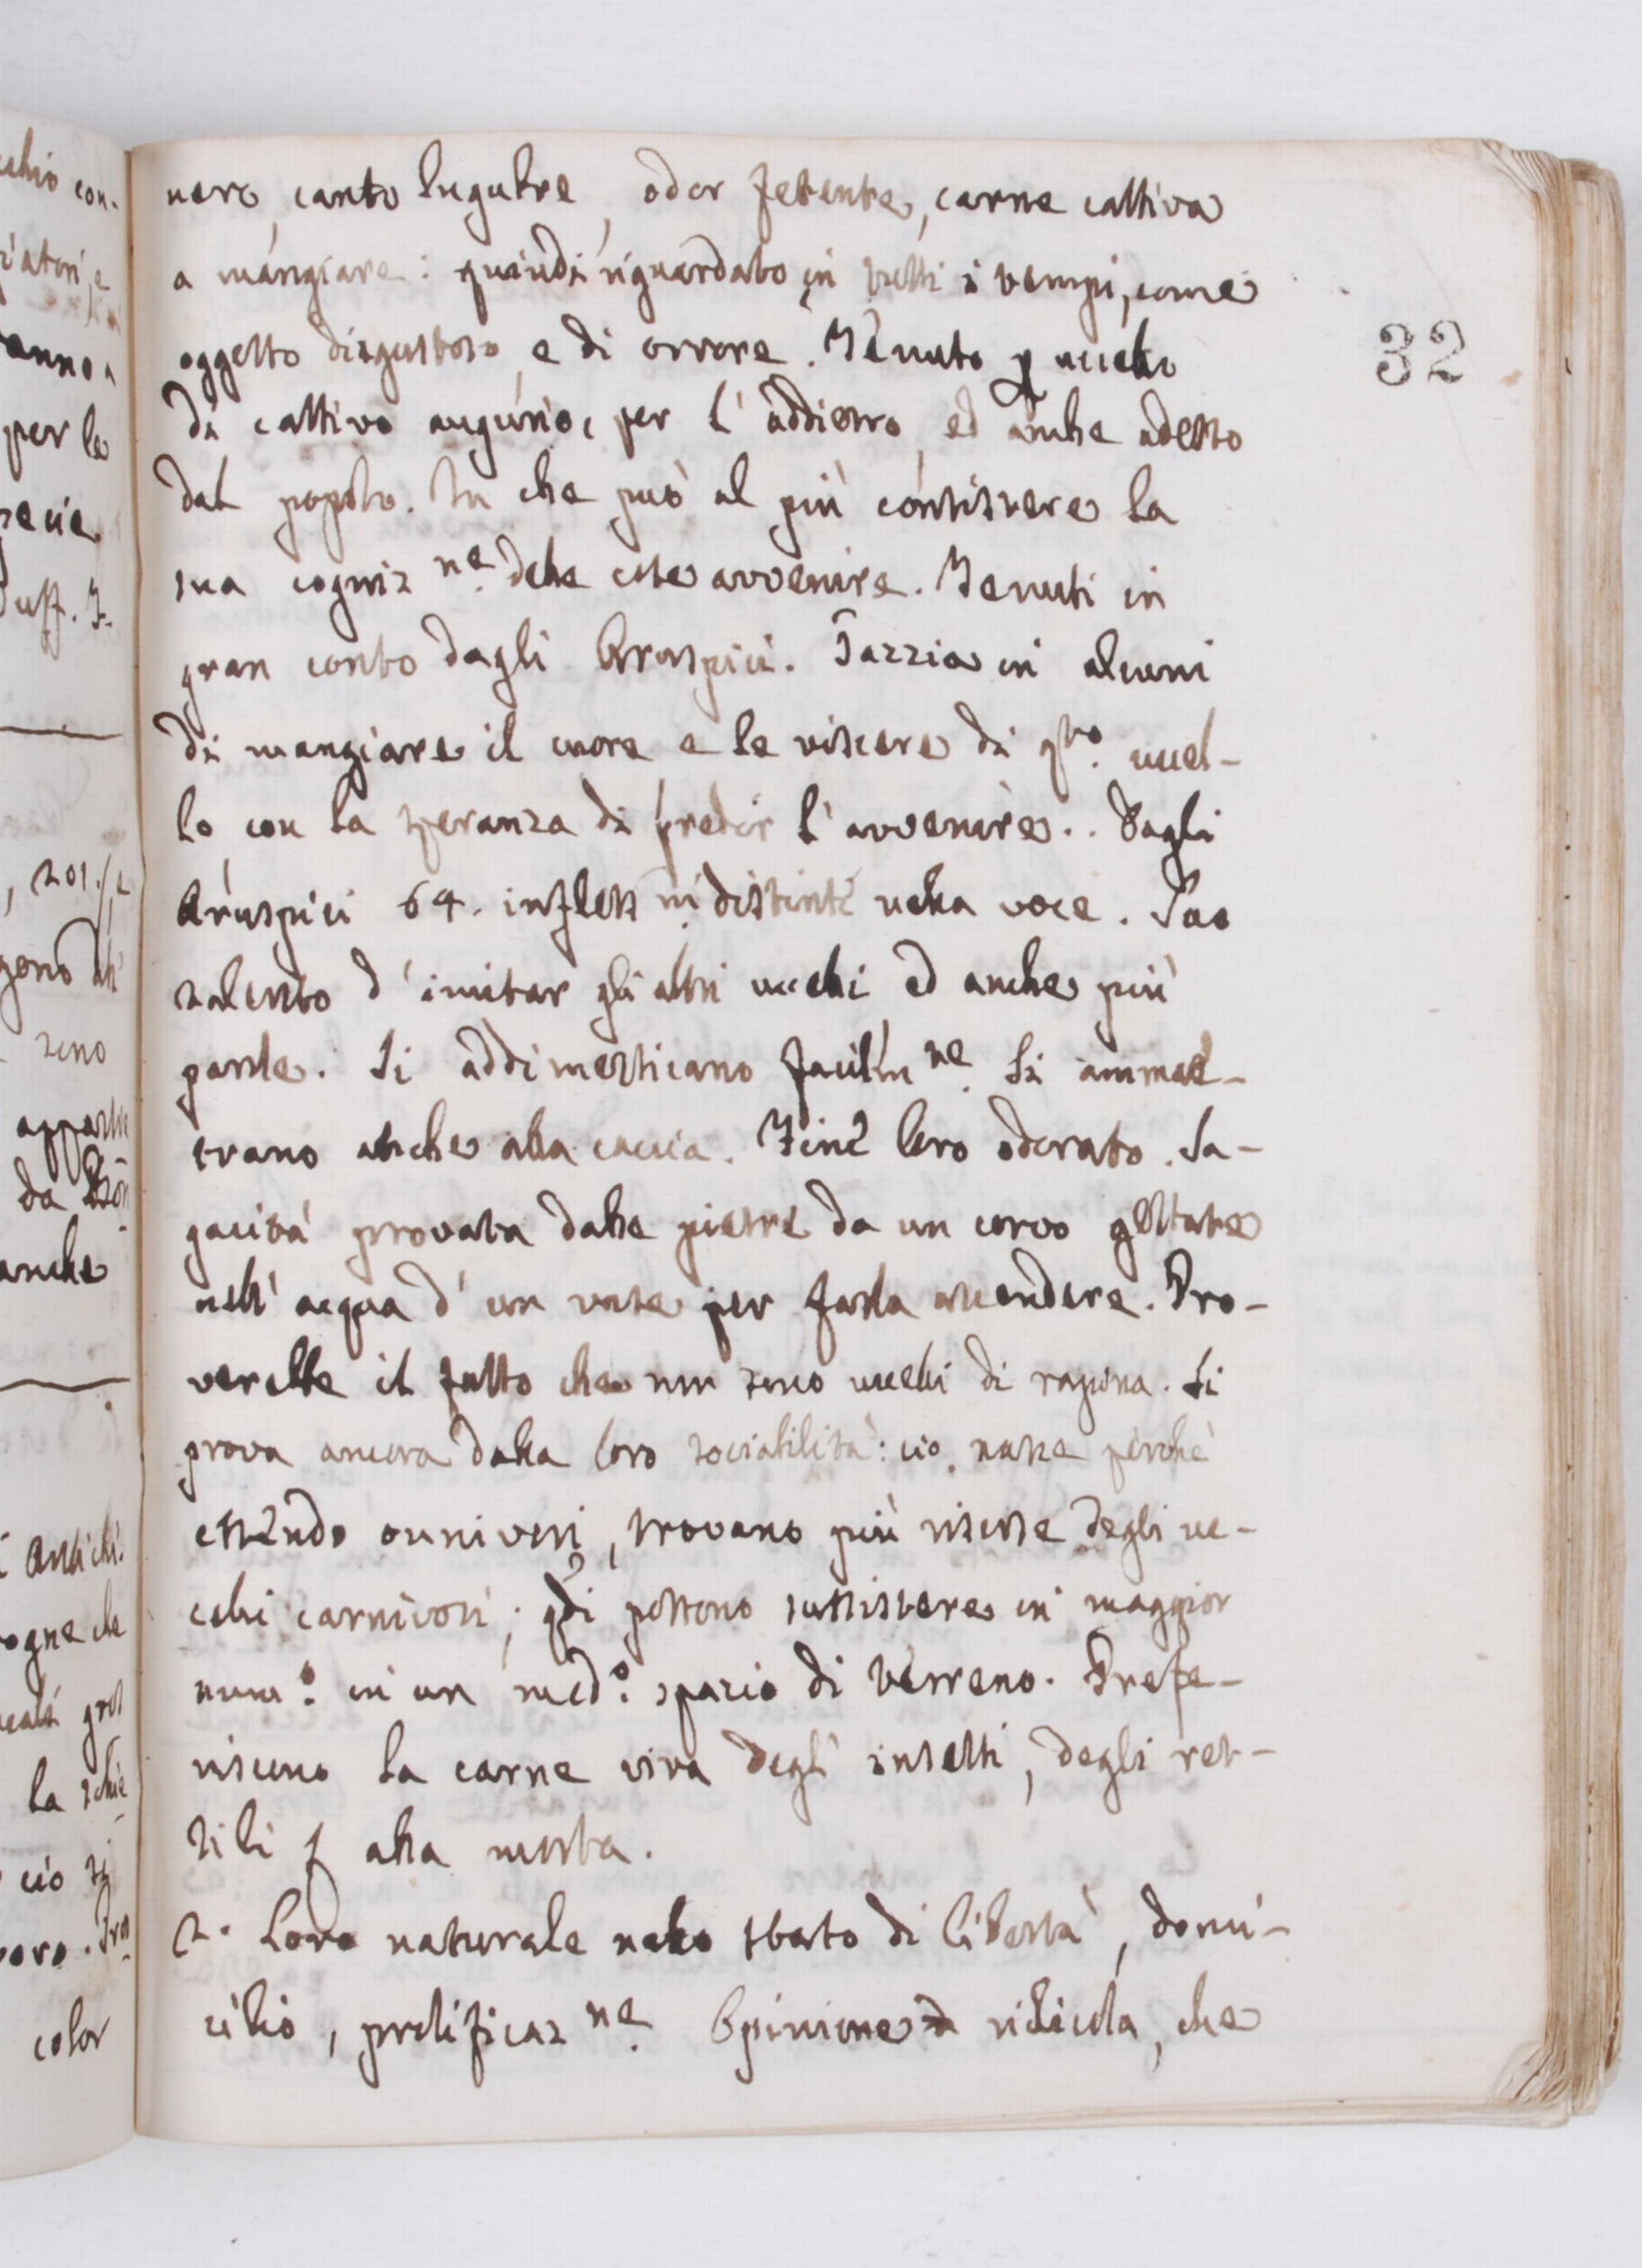 nero, canto lugubre, odor fetente, carne cattiva
a mangiare: quindi riguardato in tutti i tempi, come
oggetto disgustoso e di orrore. Tenuto p uccello
di cattivo augurio, per l'addietro, ed anche adesso
dal popolo. In che può al più consistere la
sua cogniz.ne delle cose avvenire. Tenuti in
gran conto dagli Aruspici. Pazzia in alcuni
di mangiare il cuore e le viscere di q.to uccel-
lo con la speranza di predir l'avvenire.. Dagli
Aruspici 64. infless.ni distinte nella voce. Suo
talento d'imitar gli altri uccelli ed anche più
parole. Si addimesticano facilm.ne Si ammae-
trano anche alla caccia. Fine loro odorato. Sa-
gacità provata dalle pietre da un corvo gettate
nell'acqua d'un vase per farla ascendere. Pro-
verebbe il fatto che non sono uccelli di rapina. Si
prova ancora dalla loro sociabilità: ciò nasce perchè
essendo omnivori, trovano più risorse degli uc-
celli carnivori; qdi possono sussistere in maggior
num.o in un med.o spazio di terreno. Prefe-
riscono la carne viva degl'insetti, degli ret-
tili alla morta.
2. Loro naturale nello stato di libertà, domi-
cilio, prolificaz.ne Opinione ridicola, che
32